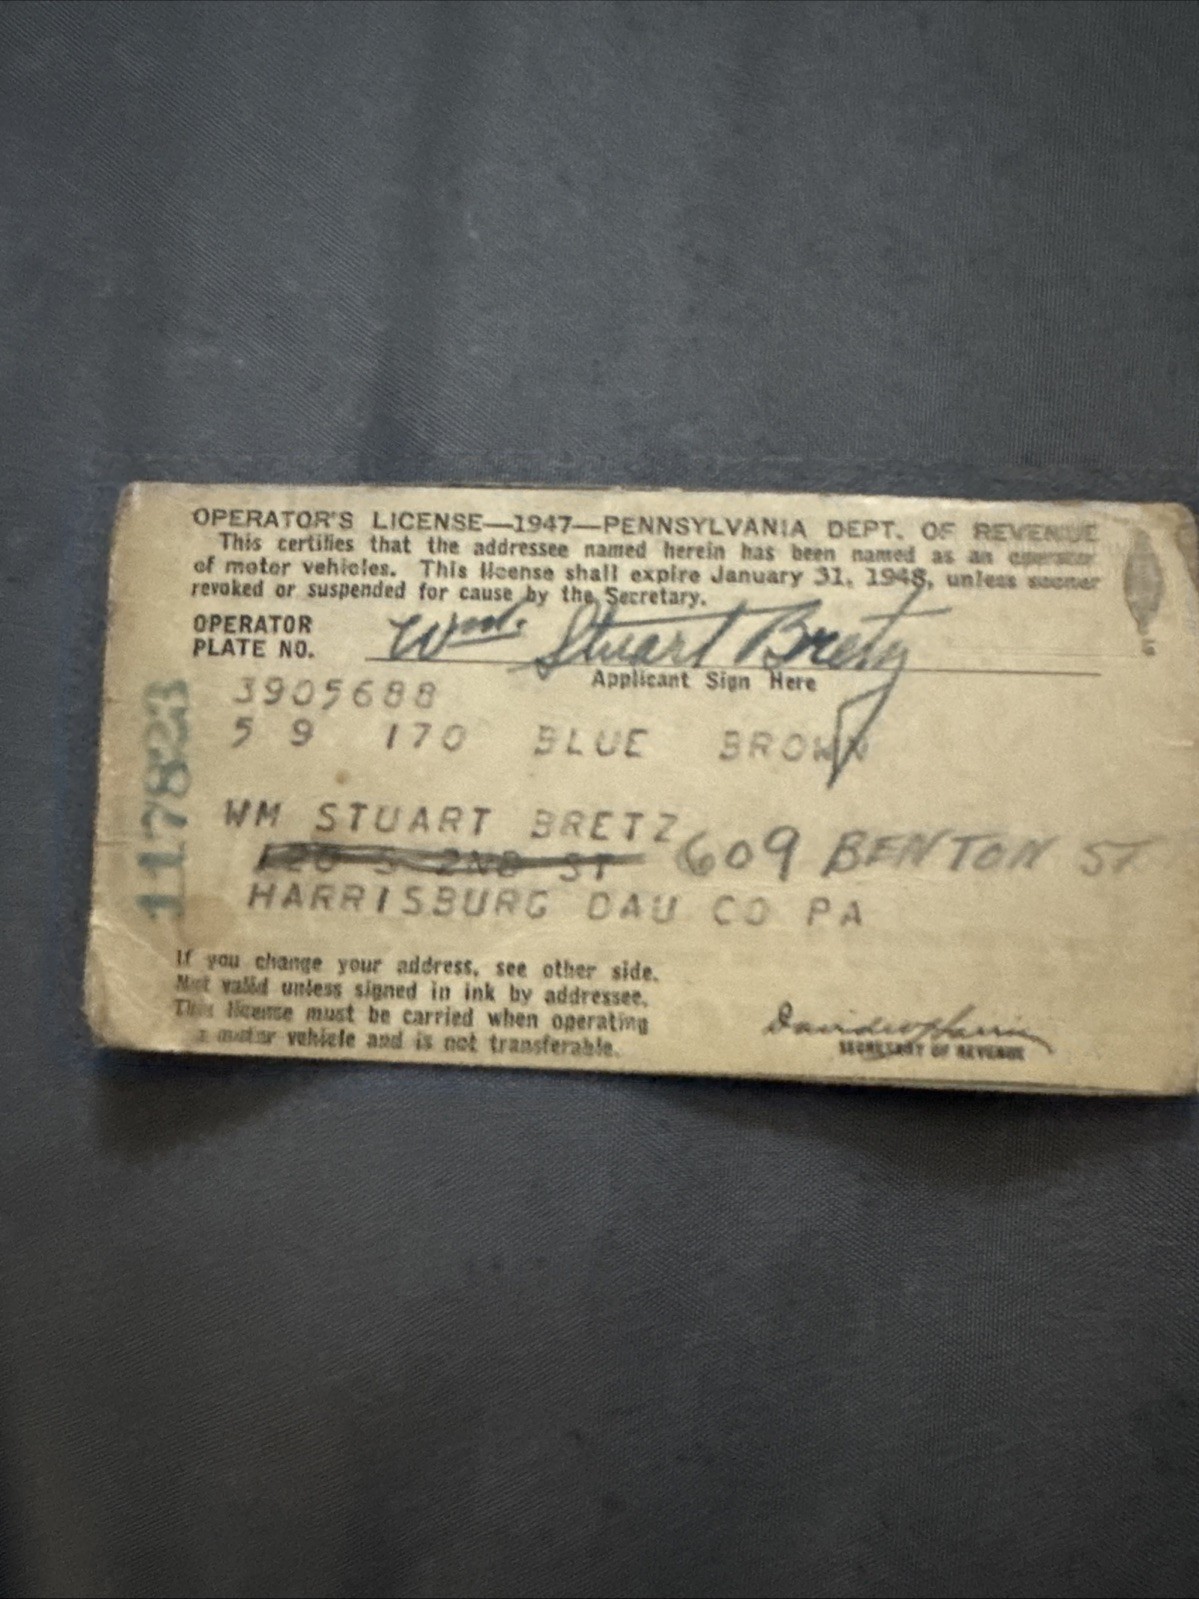 OPERATOR'S LICENSE—1947—PENNSYLVANIA DEPT. OF REVENUE
This certifies that the addressee named herein has been named as an operator
of motor vehicles. This license shall expire January 31, 1948, unless sooner
revoked or suspended for cause by the Secretary.
OPERATOR
PLATE NO.
Wm. Stuart Bretz
Applicant Sign Here
3905688
5 9 170 BLUE BROWN
117823
WM STUART BRETZ
120 S 2ND ST 609 BENTON ST
HARRISBURG DAU CO PA
If you change your address, see other side.
Not valid unless signed in ink by addressee.
This license must be carried when operating
a motor vehicle and is not transferable.
SECRETARY OF REVENUE